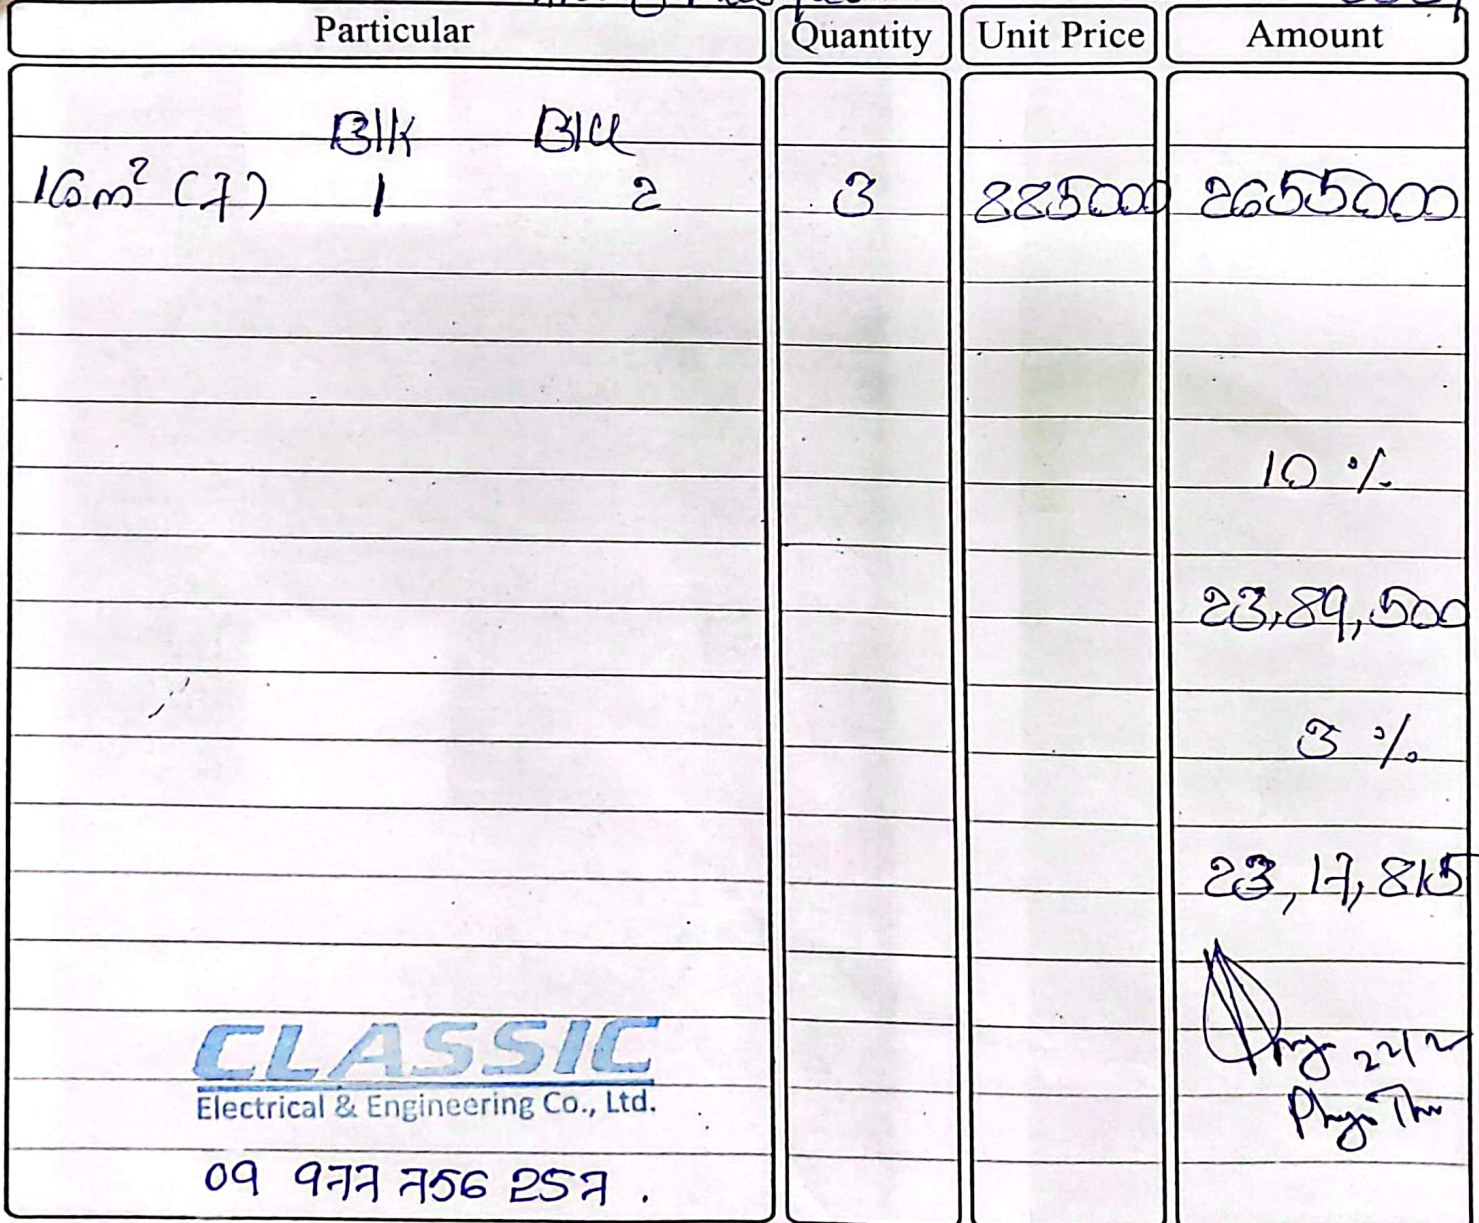 Particular Quantity Unit Price Amount
Blk Blu
16m² (7) 1 2 3 885000 2655000
10 %
23,89,500
3 %
23,17,815
22/2
CLASSIC
Electrical & Engineering Co., Ltd.
09 977 756 257.